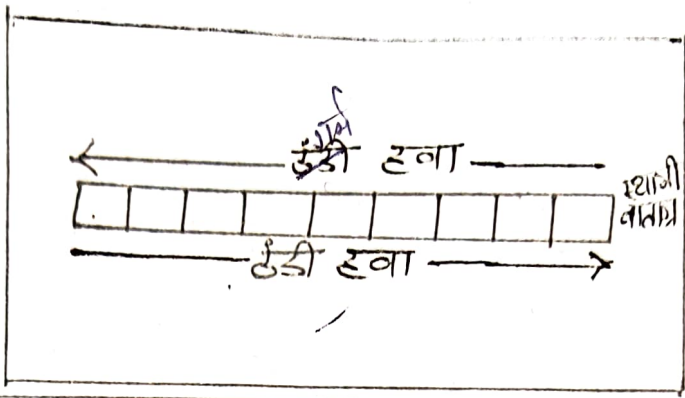 गर्म
ठंडी हवा
स्थायी
वाताग्र
ठंडी हवा